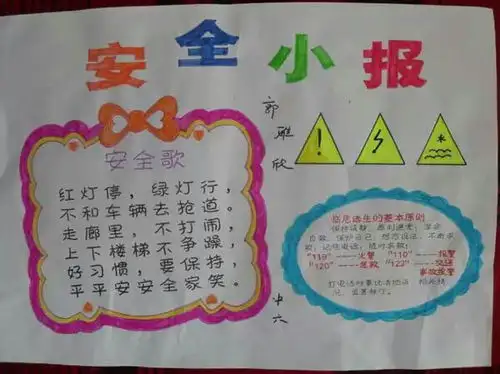 安全小报
郭
雅
欣
安全歌
红灯停，绿灯行，
不和车辆去抢道。
走廊里，不打闹，
上下楼梯不争躁，
好习惯，要保持，
平平安安全家笑。
中
六
危急逃生的基本原则
保持镇静，
"119"——火警 "110"——报警
"120"——急救 "122"——交通
事故报警